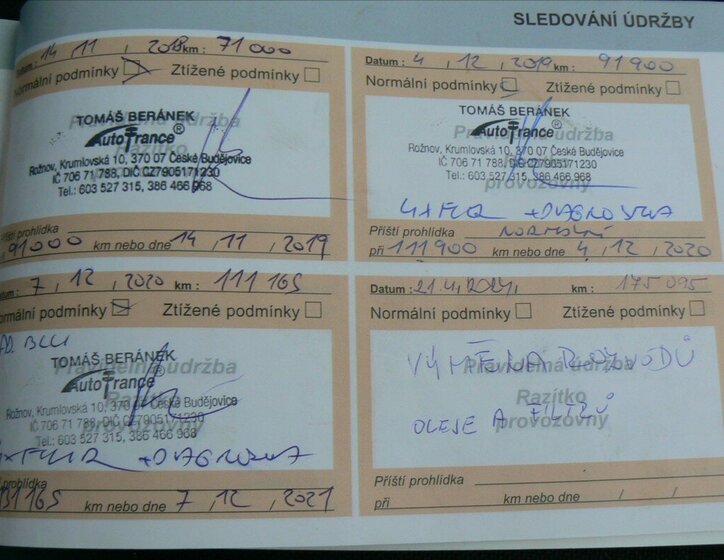 SLEDOVÁNÍ ÚDRŽBY
14, 11, 2018 km : 71 000
Normální podmínky Ztížené podmínky
Pravidelná údržba
Razítko
provozovny
TOMÁŠ BERÁNEK
AutoFrance®
Rožnov, Krumlovská 10, 370 07 České Budějovice
IČ 706 71 788, DIČ CZ7905171230
Tel.: 603 527 315, 386 466 968
Příští prohlídka
při 91000 km nebo dne 14, 11, 2019
Datum : 4, 12, 2019 km : 91 900
Normální podmínky Ztížené podmínky
Pravidelná údržba
Razítko
provozovny
TOMÁŠ BERÁNEK
AutoFrance®
Rožnov, Krumlovská 10, 370 07 České Budějovice
IČ 706 71 788, DIČ CZ7905171230
Tel.: 603 527 315, 386 466 968
4x FILTR + DIAGNOSTIKA
Příští prohlídka
při 111 900 km nebo dne 4, 12, 2020
Datum : 7, 12, 2020 km : 111 165
Normální podmínky Ztížené podmínky
Pravidelná údržba
Razítko
provozovny
TOMÁŠ BERÁNEK
AutoFrance®
Rožnov, Krumlovská 10, 370 07 České Budějovice
IČ 706 71 788, DIČ CZ7905171230
Tel.: 603 527 315, 386 466 968
4x FILTR + DIAGNOSTIKA
Příští prohlídka
131165 km nebo dne 7, 12, 2021
Datum : 21.4, 2024, km : 175 095
Normální podmínky Ztížené podmínky
Pravidelná údržba
Razítko
provozovny
VÝMĚNA ROZVODŮ
OLEJE A FILTRŮ
Příští prohlídka
při km nebo dne / /